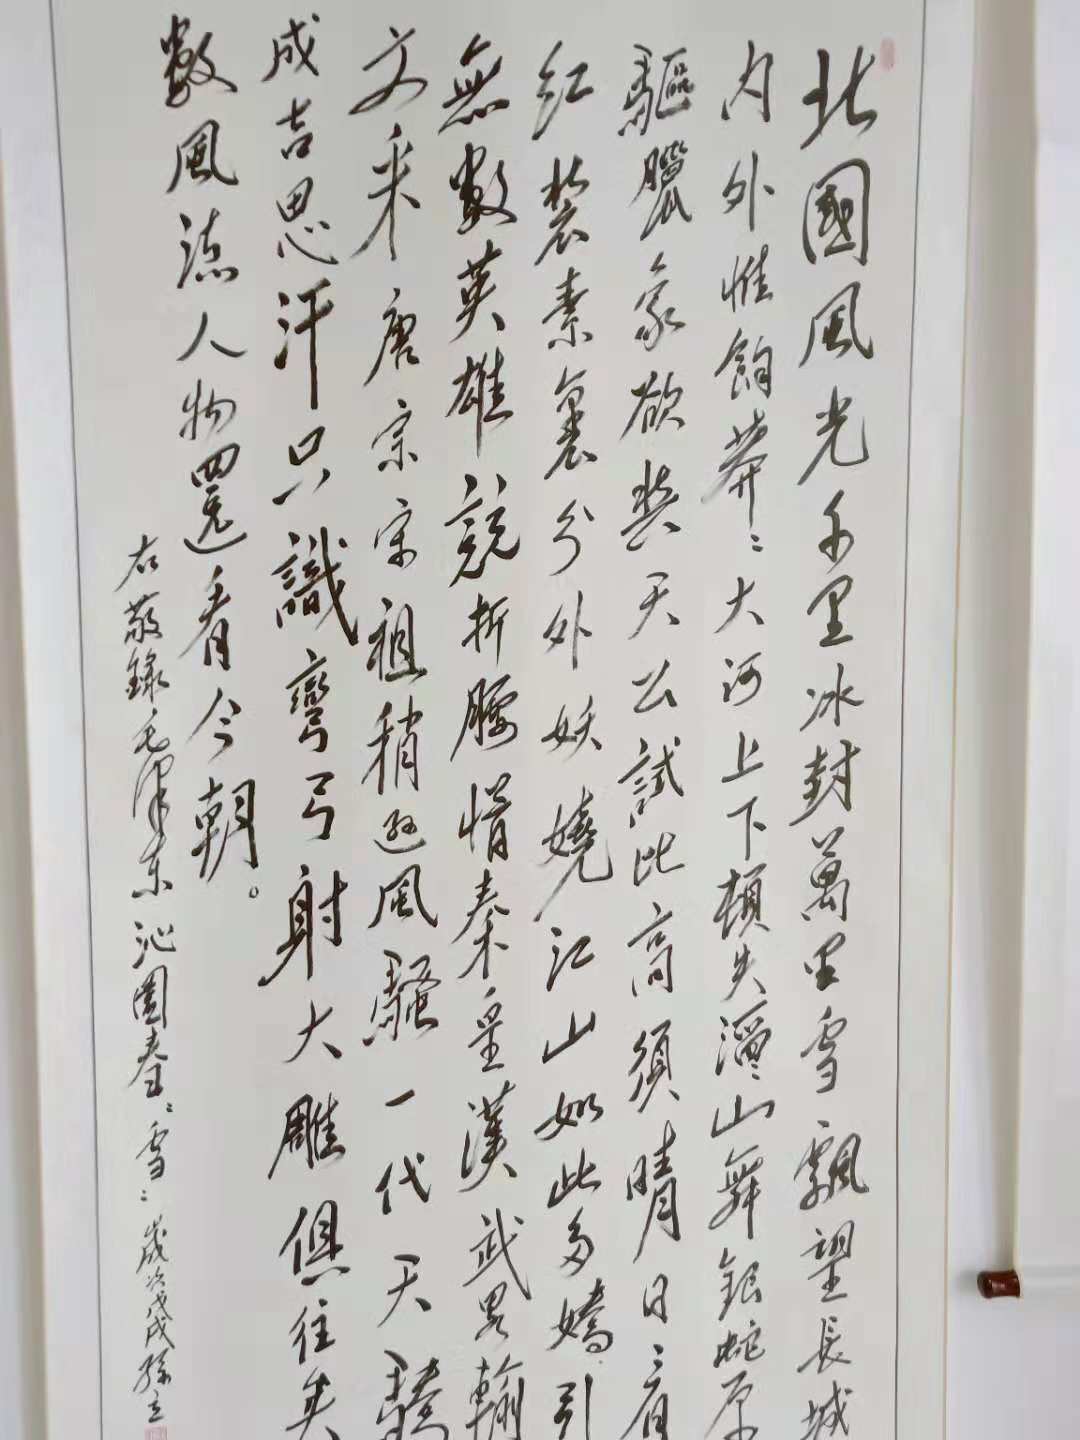 北國風光千里冰封萬里雪、飄望長城
内外惟餘莽〻大河上下頓失滔〻山舞銀蛇原
驅臘象欲與天公試比高須晴日〻看
紅裝素裹分外妖嬈江山如此多嬌、引
無數英雄競折腰惜秦皇漢武略輸
文采唐宗宋祖稍遜風騷一代天驕
成吉思汗只識彎弓射大雕俱往矣
數風流人物還看今朝。
右敬錄毛澤東沁園春〻雪〻歲次戊戌孫立